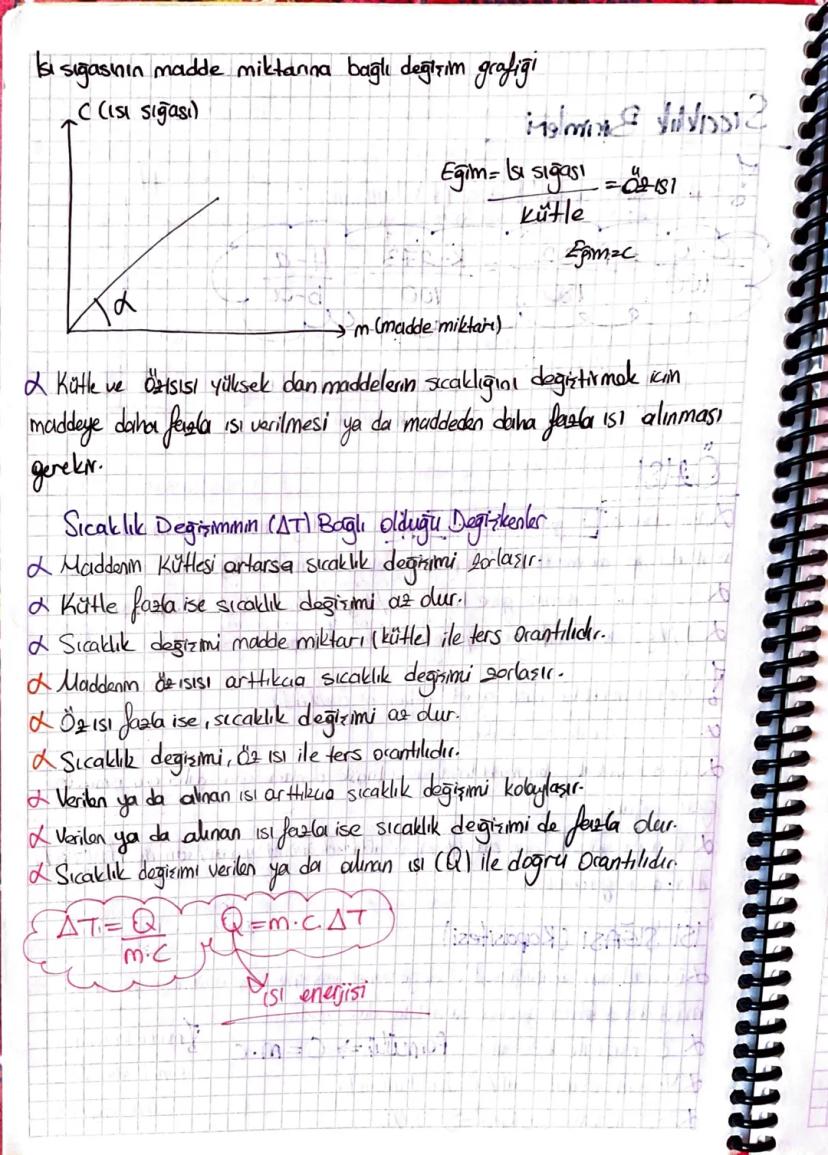 Isı sığasının madde miktarına bağlı değişim grafiği
C (ısı sığası)
Eğim = Isı sığası = Öz ısı
Kütle
Eğim=c
α
m (madde miktarı)
α Kütle ve özısısı yüksek olan maddelerin sıcaklığını değiştirmek için
maddeye daha fazla ısı verilmesi ya da maddeden daha fazla ısı alınması
gerekir.
Sıcaklık Değişiminin (ΔT) Bağlı olduğu Değişkenler
α Maddenin kütlesi artarsa sıcaklık değişimi zorlaşır.
α Kütle fazla ise sıcaklık değişimi az olur.
α Sıcaklık değişimi madde miktarı (kütle) ile ters orantılıdır.
α Maddenin öz ısısı arttıkça sıcaklık değişimi zorlaşır.
α Öz ısı fazla ise, sıcaklık değişimi az olur.
α Sıcaklık değişimi, öz ısı ile ters orantılıdır.
α Verilen ya da alınan ısı arttıkça sıcaklık değişimi kolaylaşır.
α Verilen ya da alınan ısı fazla ise sıcaklık değişimi de fazla olur.
α Sıcaklık değişimi verilen ya da alınan ısı (Q) ile doğru orantılıdır.
ΔT = Q Q = m.c.ΔT
m.c
ısı enerjisi